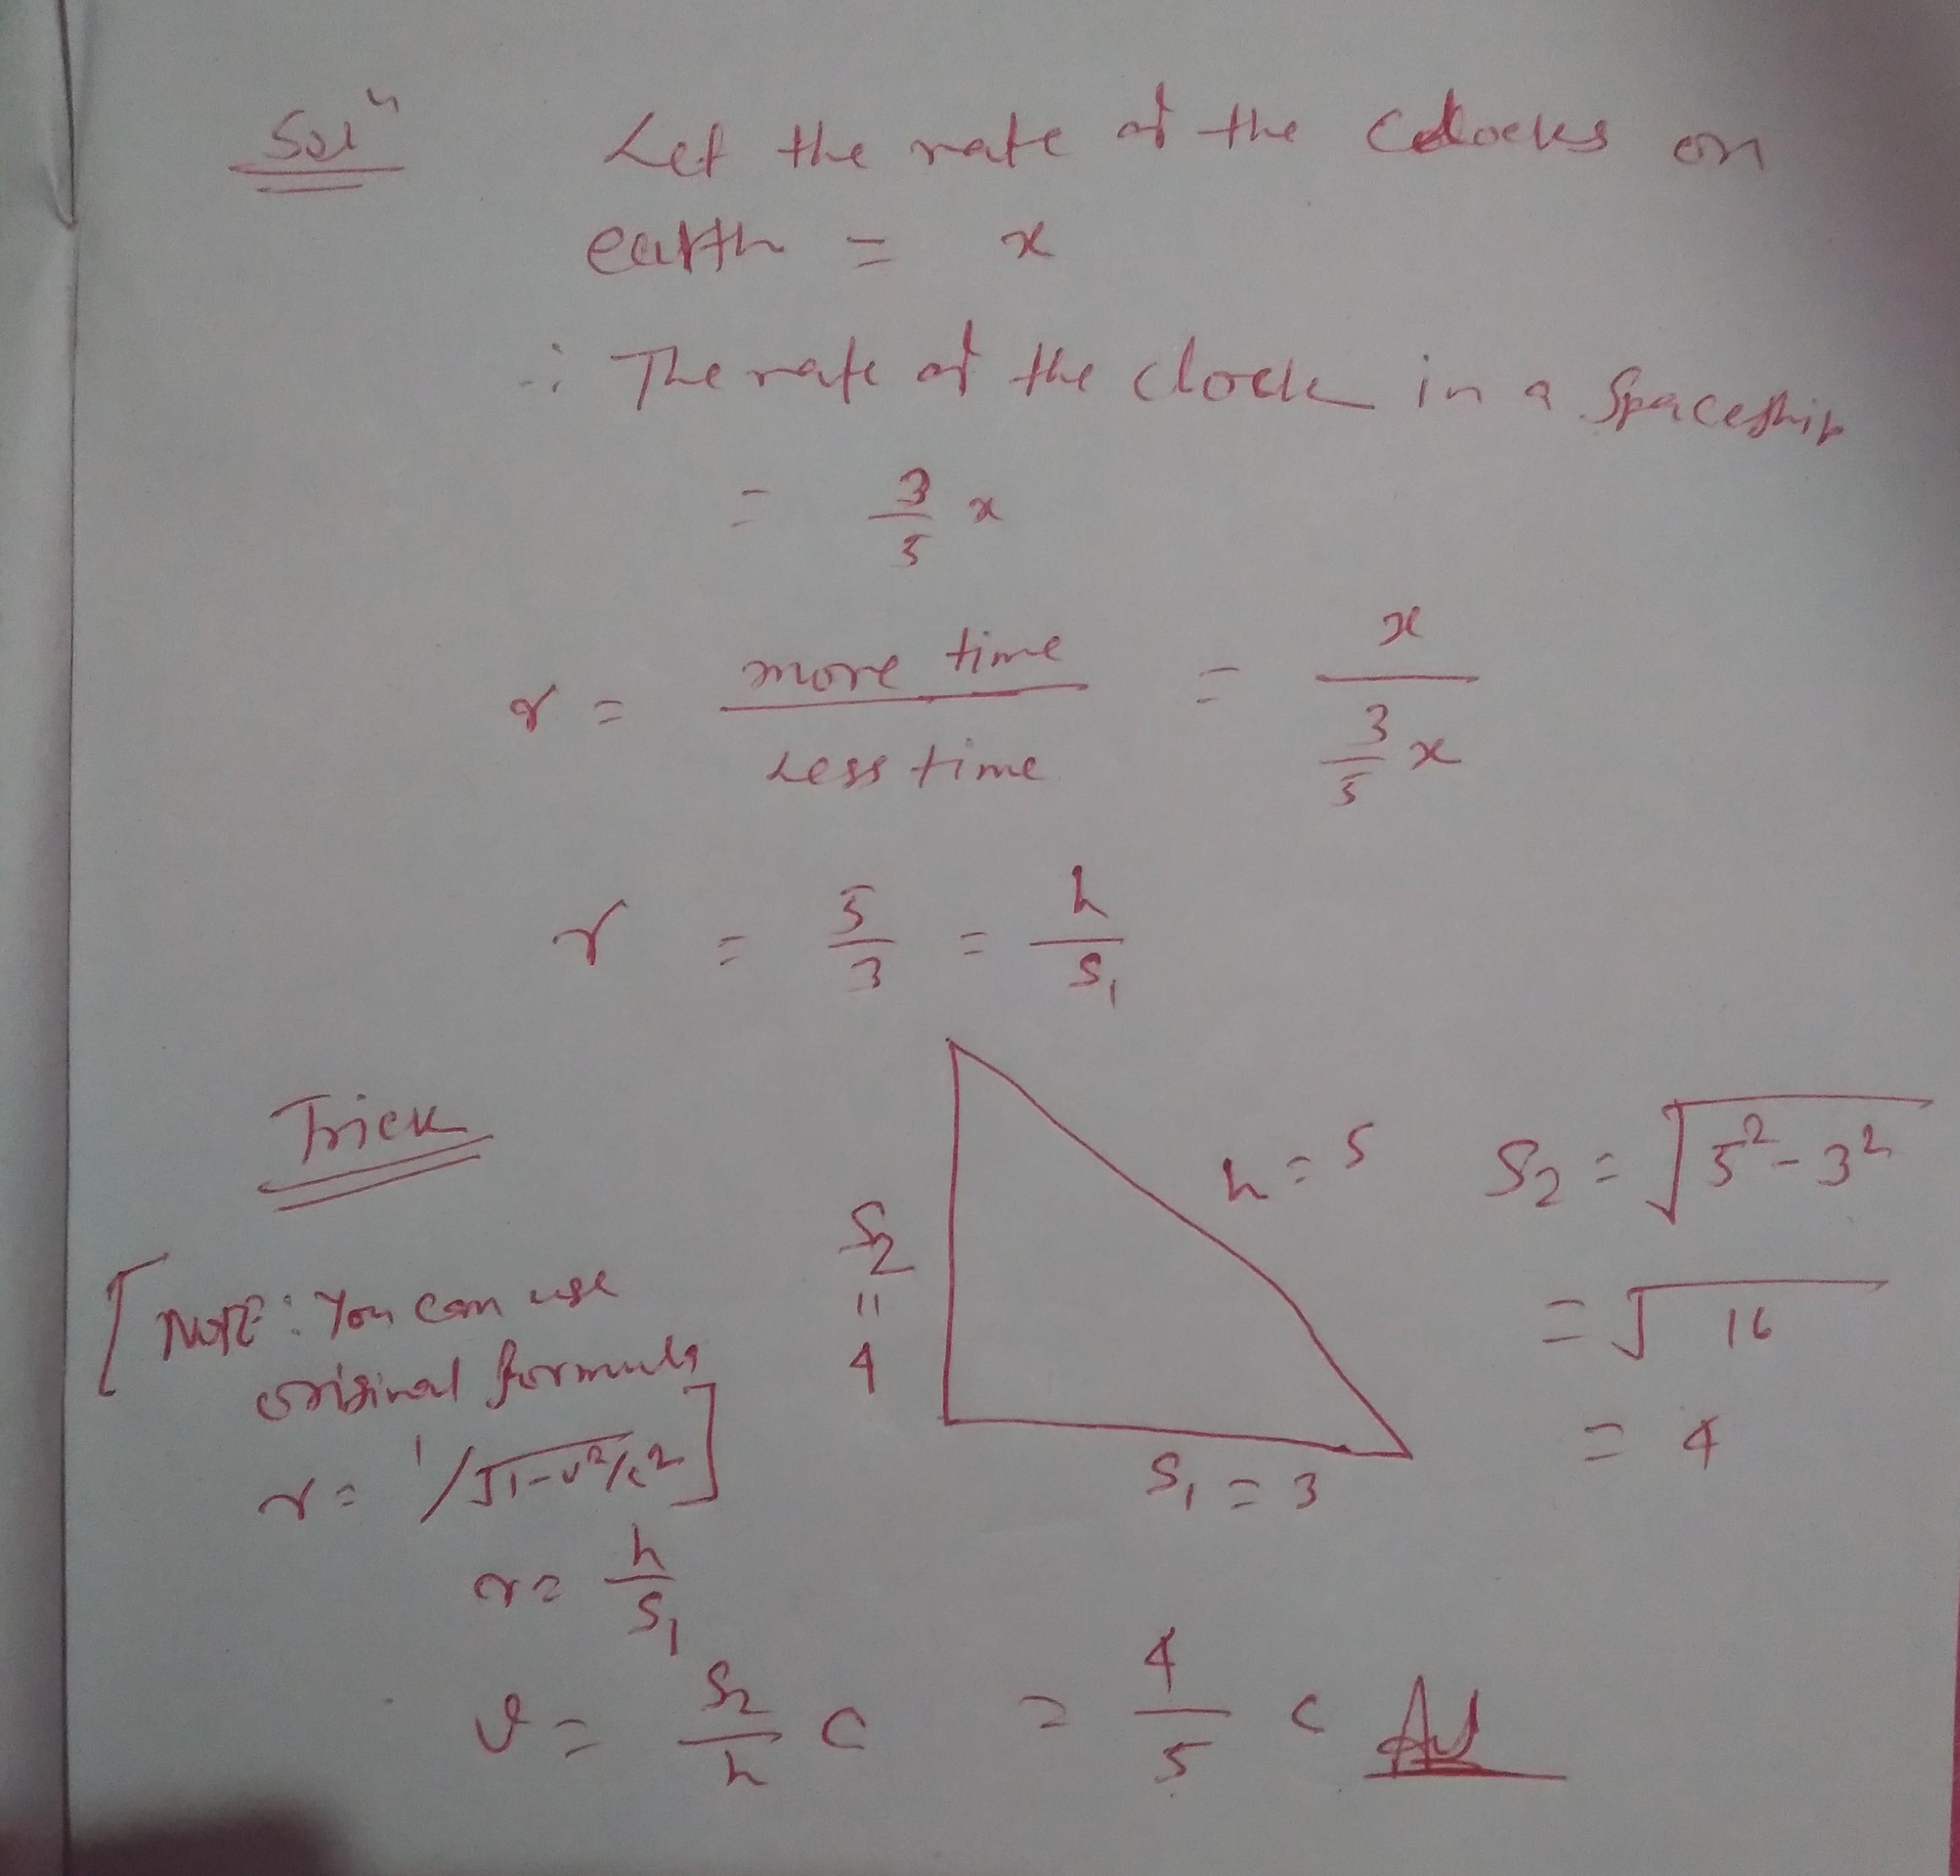 Solⁿ Let the rate of the clocks on
earth = x
∴ The rate of the clock in a spaceship
= 3/5 x
γ = more time / Less time = x / (3/5 x)
γ = 5/3 = h/S₁
Trick
h = 5
S₂ = √(5² - 3²)
S₂ = 4
= √16
= 4
S₁ = 3
[NOTE: You can use
original formula
γ = 1/√1-v²/c²]
γ = h/S₁
v = S₂/h c = 4/5 c